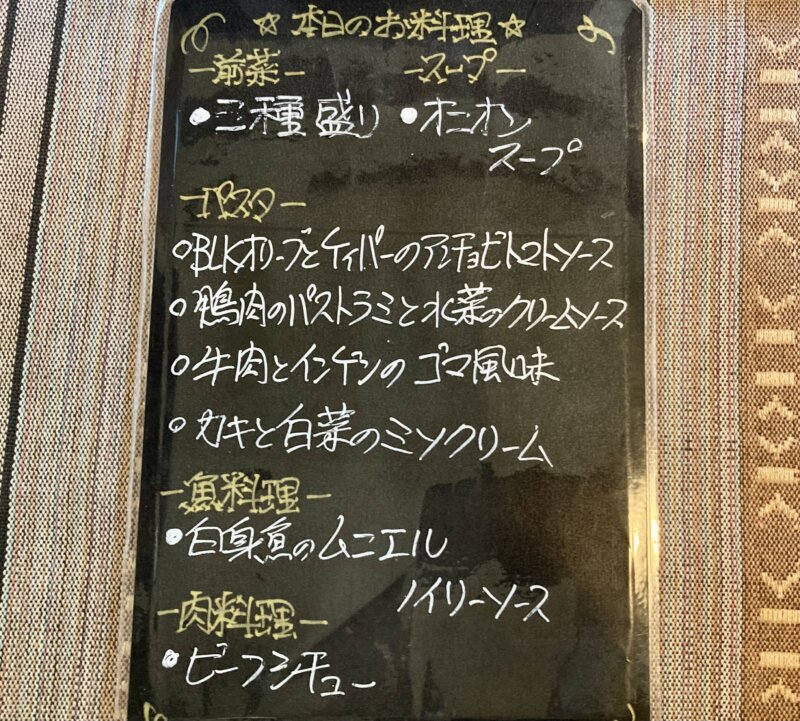 ☆本日のお料理☆
ー前菜ー
ースープー
●三種盛り
●オニオン
スープ
ーパスターー
○BLKオリーブとケイパーのアンチョビトマトソース
○鴨肉のパストラミと水菜のクリームソース
○牛肉とインゲンのゴマ風味
○カキと白菜のミソクリーム
ー魚料理ー
●白身魚のムニエル
ノイリーソース
ー肉料理ー
●ビーフシチュー